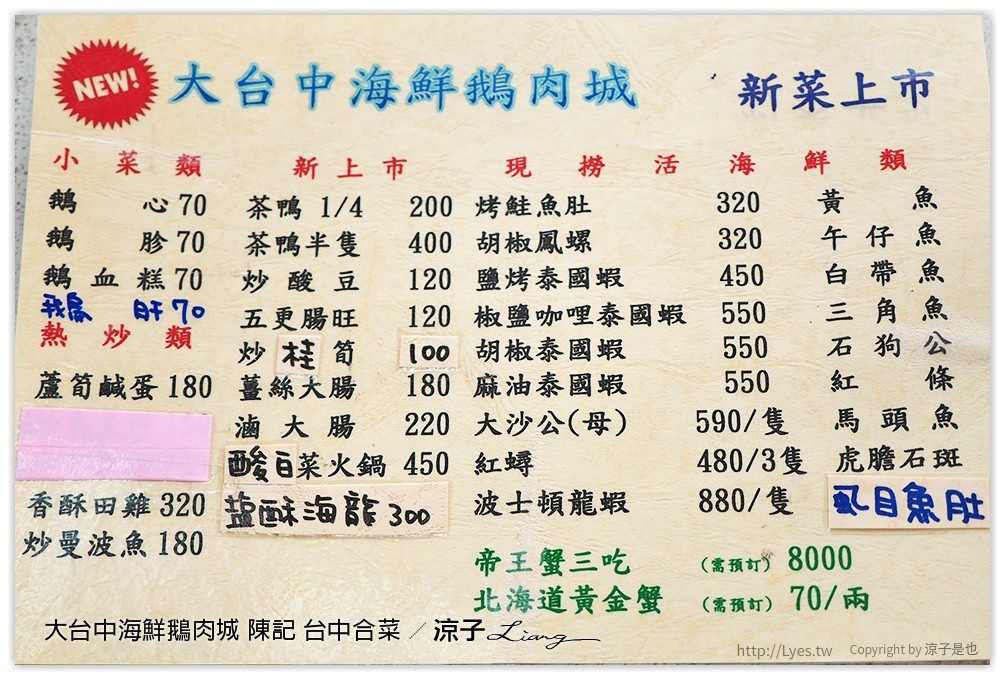 NEW! 大台中海鮮鵝肉城 新菜上市
小菜類
鵝心 70
鵝胗 70
鵝血糕 70
鵝 肝 70
熱炒類
蘆筍鹹蛋 180
香酥田雞 320
炒曼波魚 180
新上市
茶鴨 1/4 200
茶鴨半隻 400
炒酸豆 120
五更腸旺 120
炒桂筍 100
薑絲大腸 180
滷大腸 220
酸白菜火鍋 450
盐酥海龍 300
現撈活海鮮類
烤鮭魚肚 320
胡椒鳳螺 320
鹽烤泰國蝦 450
椒鹽咖哩泰國蝦 550
胡椒泰國蝦 550
麻油泰國蝦 550
大沙公(母) 590/隻
紅蟳 480/3隻
波士頓龍蝦 880/隻
黃魚
午仔魚
白帶魚
三角魚
石狗公
紅條
馬頭魚
虎膽石斑
虱目魚肚
帝王蟹三吃 (需預訂) 8000
北海道黃金蟹 (需預訂) 70/兩
大台中海鮮鵝肉城 陳記 台中合菜 / 涼子 Liang
http://Lyes.tw Copyright by 涼子是也